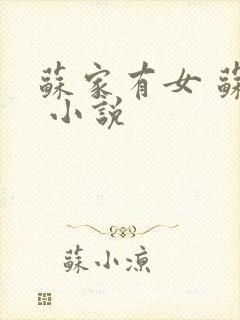 蘇家有女 蘇
小說
蘇小涼